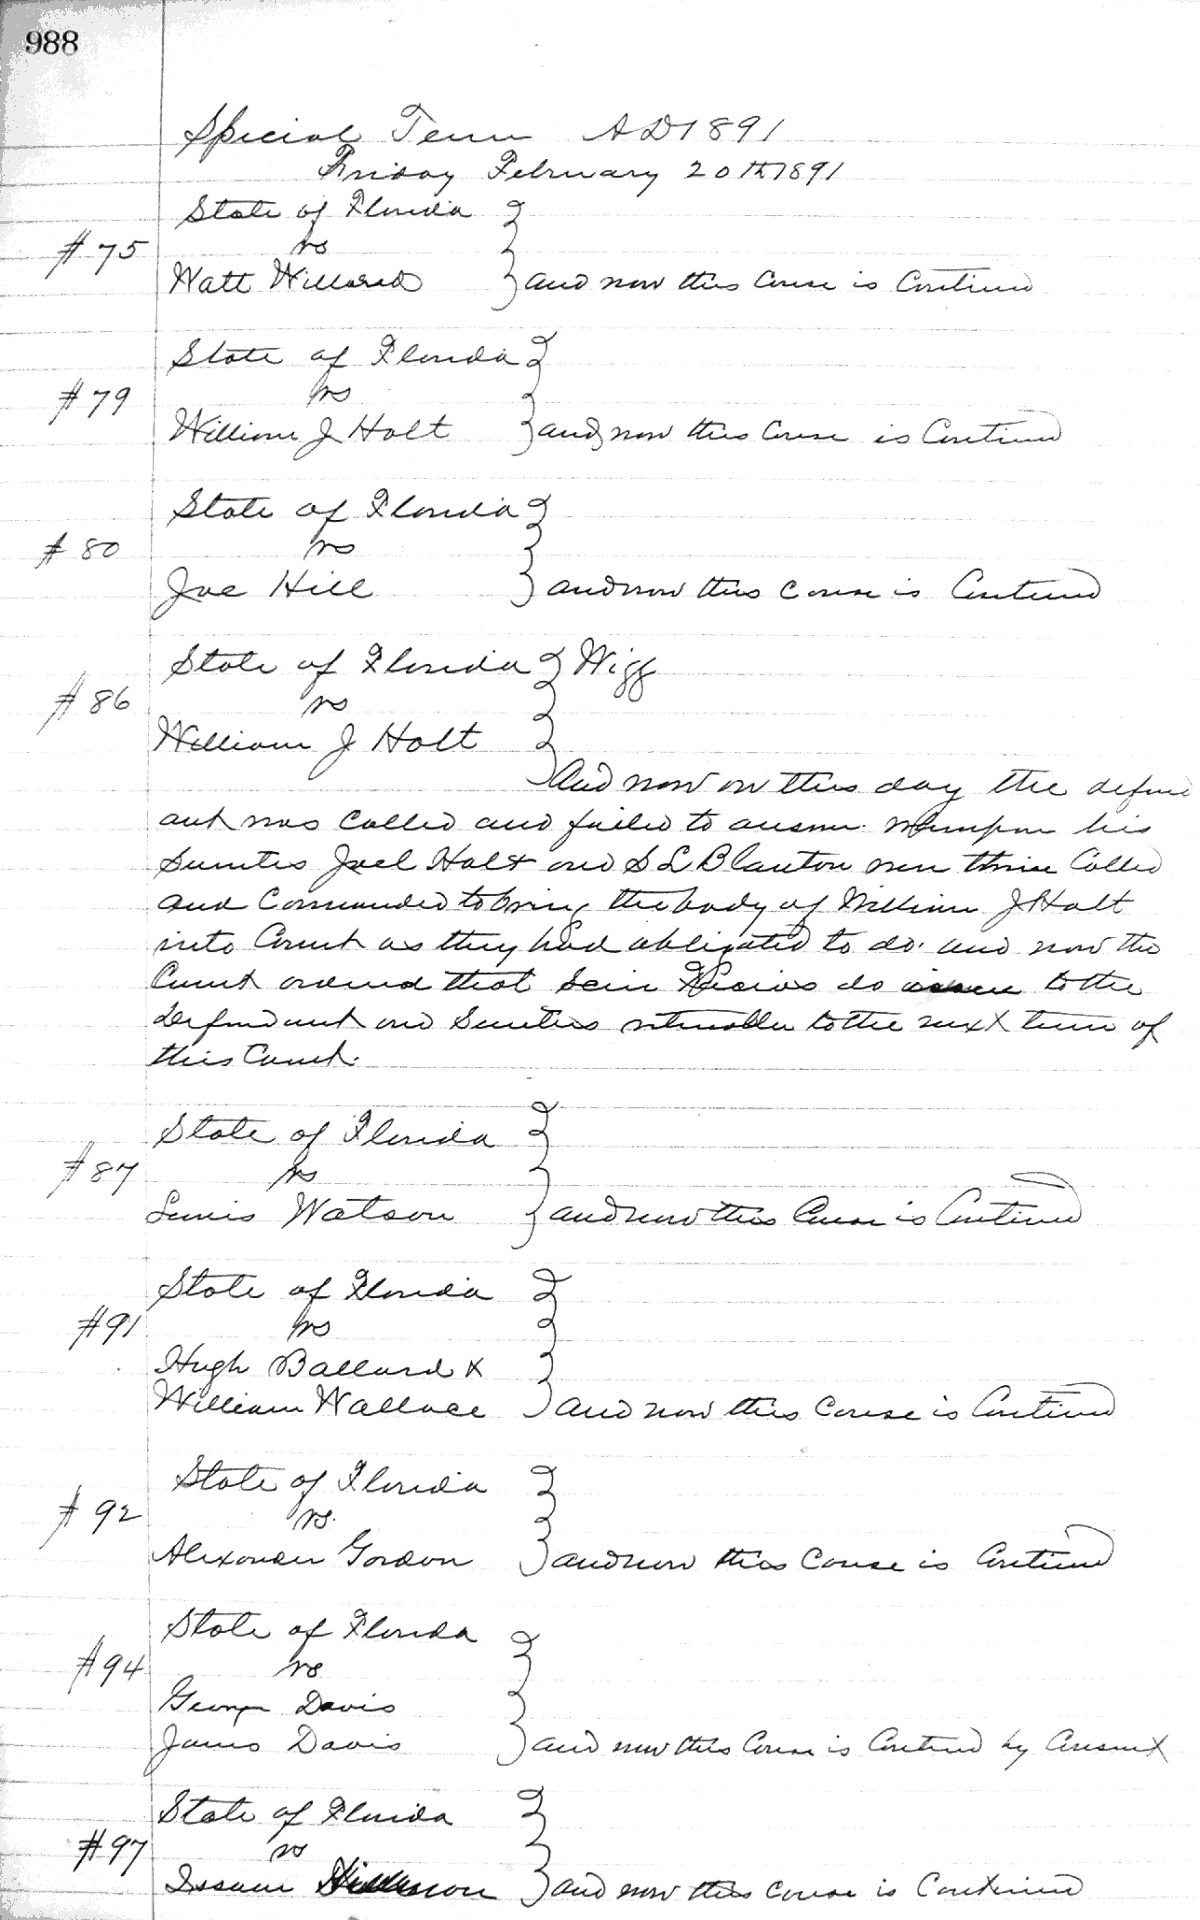 988
Special Term AD 1891
Friday February 20th 1891
State of Florida
vs
#75
Watt Willard and now this Cause is Continued
State of Florida
vs
#79
William J Holt and now this Cause is Continued
State of Florida
vs
#80
Joe Hill and now this Cause is Continued
State of Florida
vs
#86
William J Holt
And now on this day the defend
ant was Called and failed to answer. Whereupon his
Sureties Joel Holt and S L Blanton were thrice Called
and Commanded to bring the body of William J Holt
into Court as they had obligated to do. and now the
Court ordered that Scire Facias do issue to the
Defendant and Sureties returnable to the next term of
this Court.
State of Florida
vs
#87
Watson and now this Cause is Continued
State of Florida
vs
#91
Hugh Ballard &
William Wallace and now this Cause is Continued
State of Florida
vs.
#92
Alexander Gordon and now this Cause is Continued
State of Florida
vs
#94
George Davis
James Davis and now this Cause is Continued by Consent
State of Florida
vs
#97
Isaam and now this Cause is Continued